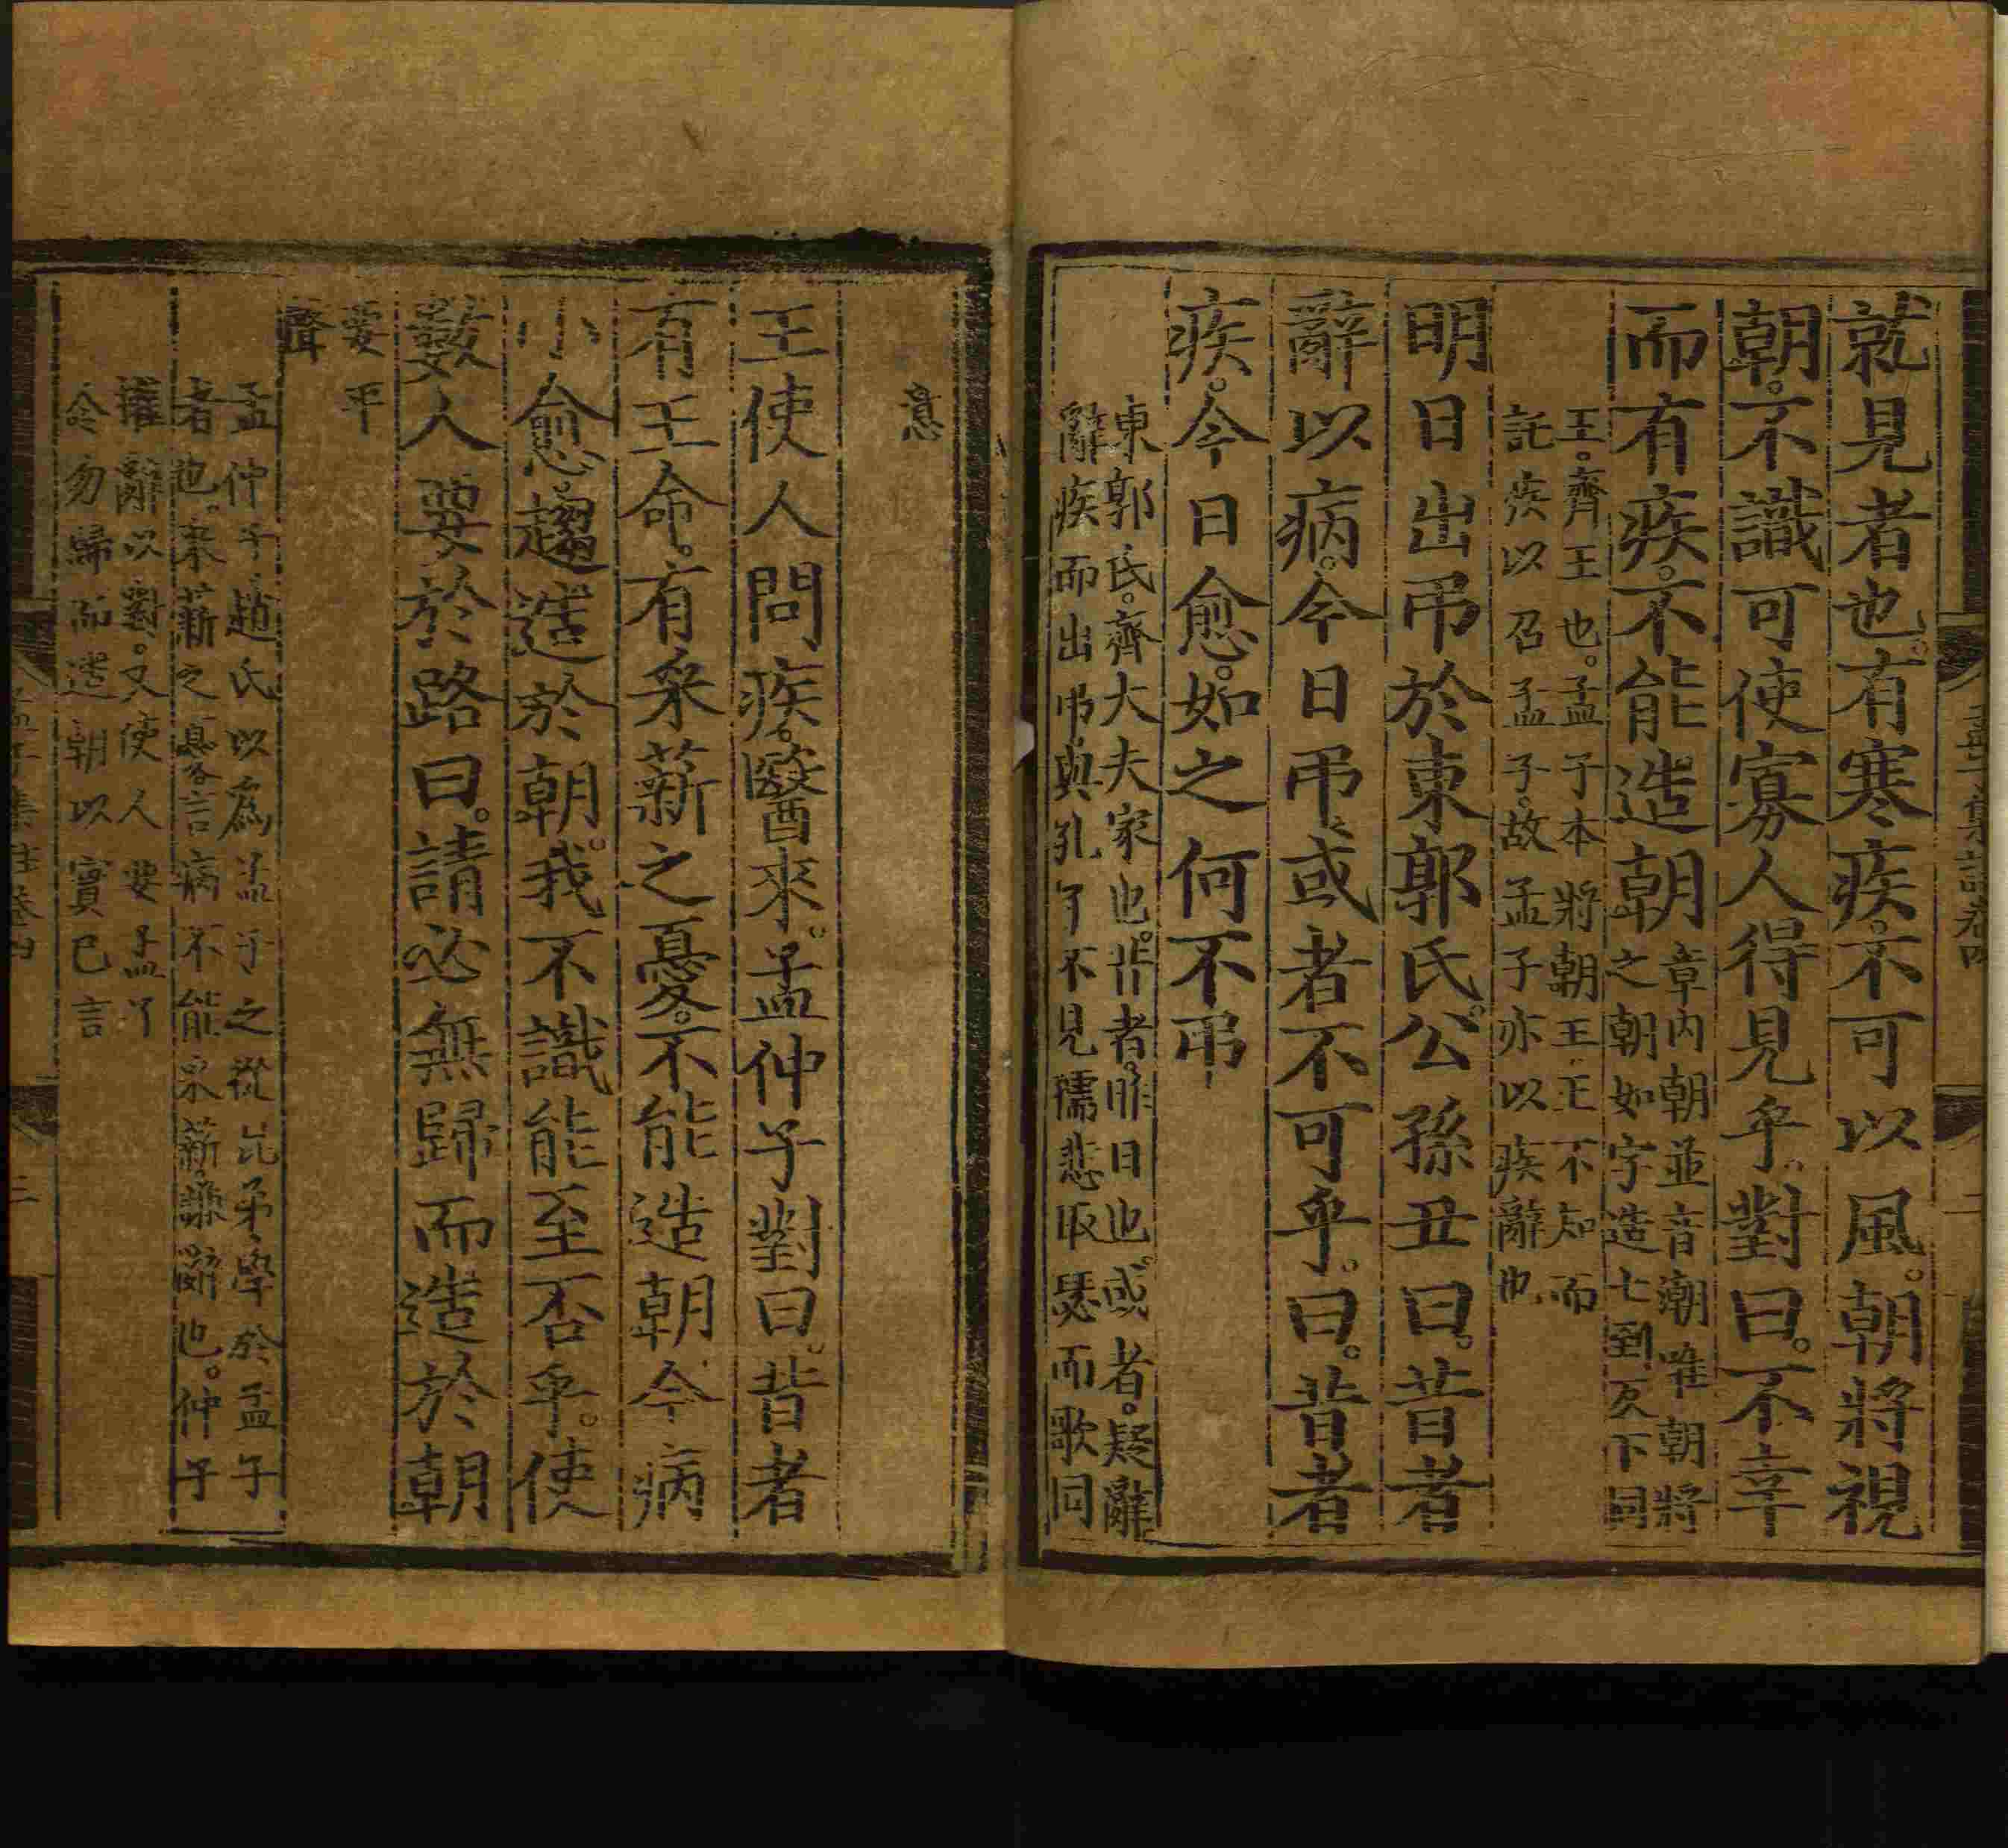 就見者也。有寒疾。不可以風。朝將視
朝。不識可使寡人得見乎。對曰。不幸
而有疾。不能造朝
章內朝並音潮唯朝將
之朝如字造七到反下同
王。齊王也。孟子本將朝王。王不知而
託疾以召孟子。故孟子亦以疾辭也
明日出弔於東郭氏。公孫丑曰。昔者
辭以病。今日弔。或者不可乎。曰。昔者
疾。今日愈。如之何不弔
東郭氏。齊大夫家也。昔者。昨日也。或者。疑辭
辭疾而出弔。與孔子不見孺悲取瑟而歌同
意
王使人問疾。醫來。孟仲子對曰。昔者
有王命。有采薪之憂。不能造朝今病
小愈。趨造於朝。我不識能至否乎。使
數人要於路曰。請必無歸而造於朝
要平
聲
孟仲子趙氏以為孟子之從昆弟學於孟子
者也。采薪之憂。言病不能采薪。謙辭也。仲子
權辭以對。又使人要孟子
令勿歸而造朝以實己言
孟子集註卷四
二
孟子集註卷四
三